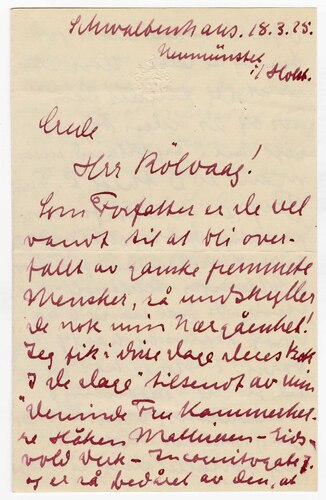 Schwalbenhaus. 18.3.25.
Neumünster
i/ Holst.
Ærede
Herr Rölvaag!
Som Forfatter er De vel
vandt til at bli over-
fallt av ganske fremmete
Mensker, så undskyller
De nok min Nærgåenhet!
Jeg fik i disse Dage Deres bok
"I de dage" tilsendt av min
Veninde Fru Kammerher-
re Håken Mathiesen - Eids-
vold Verk -
og er så bedåret av den, at